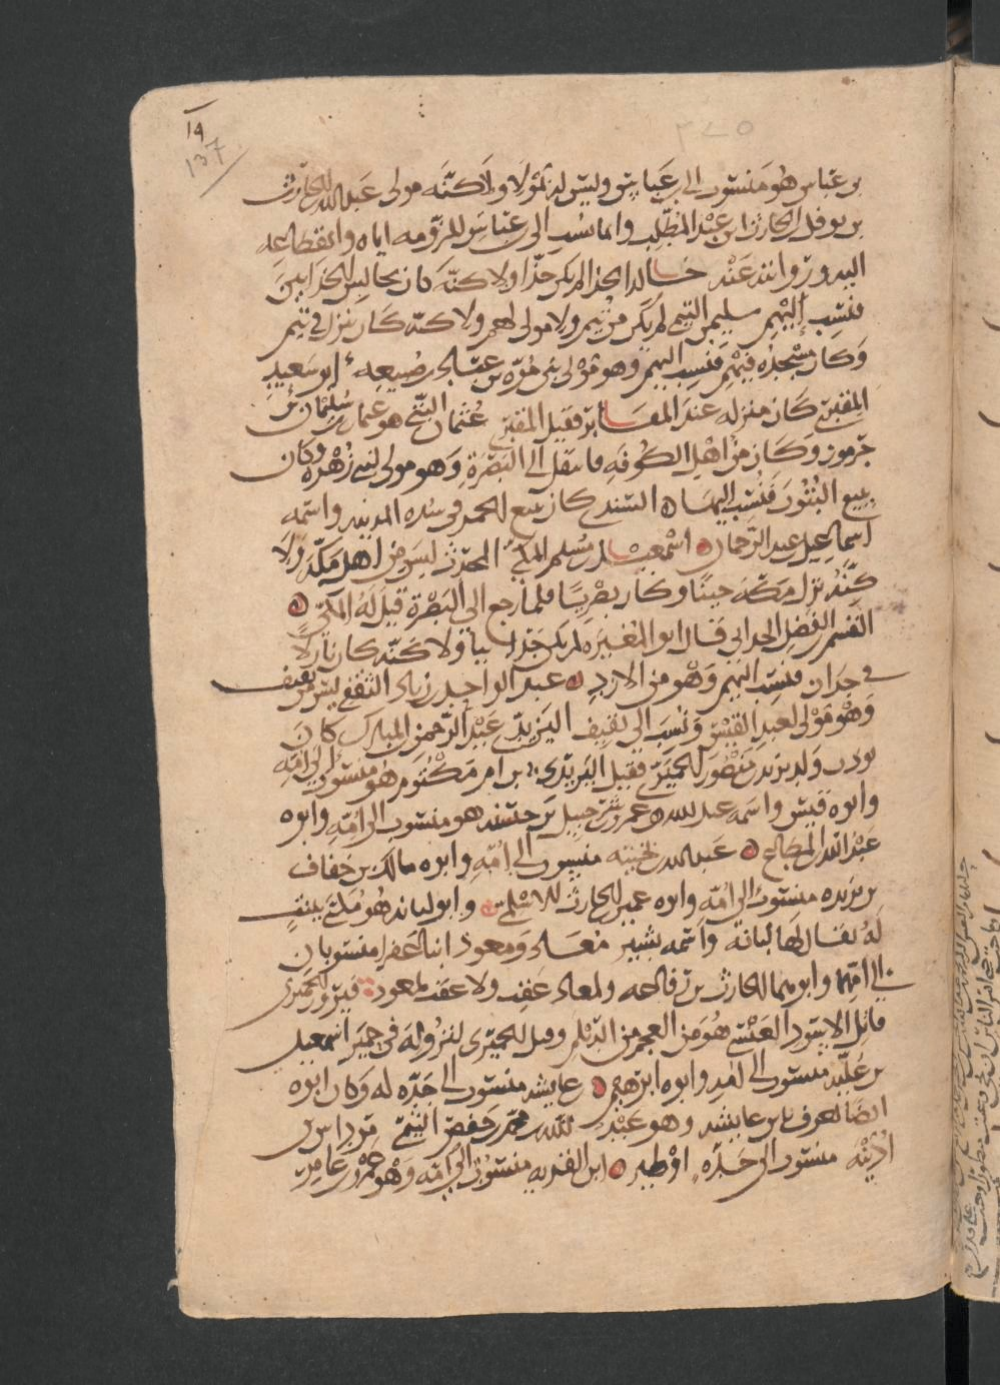 ١٩
137
٣٧٥
بن عباس هو منسوب الى بن عباس وليس له بمولا ولاكنه مولى عبد الله الحارث
بن نوفل الحارث ابن عبد المطلب وانما نسب الى بن عباس للزومه اياه وانقطاعه
اليه وروايته عنه خالد الحذا لم يكن حذا ولاكنه كان يجالس الحذايين
فنسب إليهم سليمن التيمي لم يكن من تيم ولا مولى لهم ولاكنه كان نزل في تيم
وكان مسجده فيهم فنسب اليهم وهو مولى بني مره بن عباد بن ضبيعه ابو سعيد
المقبري كان منزله عند المقابر فقيل المقبري عثمان البتي هو عثمان سليمان بن
جرموز وكان من اهل الكوفه فانتقل الى البصرة وهو مولى لبني زهره وكان
يبيع البتوت فنسب اليها السدي كان يبيع الخمر في سده المدينه واسمه
اسماعيل عبد الرحمان اسمعيل مسلم المكي المحدث ليس من اهل مكه ولا
كنه نزل مكه حينا وكان بصريا فلما رجع الى البصرة قيل له المكي
القسم الفضل الحداني قال ابو المغيره لم يكن حدانيا ولاكنه كان نازلا
في حدان فنسب اليهم وهو من الازد عبد الواحد زياد الثقفي ليس من ثقيف
وهو مولى لعبد القيس ونسب الى ثقيف اليزيدي عبد الرحمن المبارك كان
يودب ولد يزيد منصور الحميري فقيل اليزيدي بن ام مكتوم هو منسوب الى امه
وابوه قيس واسمه عبد الله عمرو شرحبيل بن حسنه هو منسوب الى امه وابوه
عبد الله المطاع عبد الله بحينه منسوب الى امه وابوه مالك بن
منسوب الى امه وابوه عمير الحارث الاسلمي وابو لبانه هو مكنى ببنت
له يقال لها لبانة واسمه بشير معاذ ومعوذ ابنا عفرا منسوبان
الى امهما وابوهما الحارث بن رفاعه ولمعاذ عقب ولا عقب لمعوذ فيروز الحميري
قاتل الاسود العنسي هو من العجم من الديلم وقيل الحميري لنزوله في حمير اسمعيل
بن عليه منسوب الى امه وابوه ابرهيم عايشه منسوب الى جده له وكان ابوه
ايضا يعرف بابن عايشه وهو عبيد الله محمد حفص التيمي مرداس
اديه منسوب الى جده او ظير ابن الفريه منسوب الى امه وهو عمرو عامر